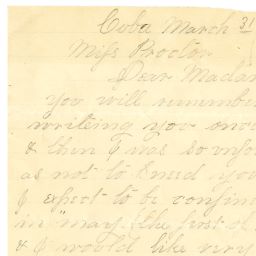 Coba March 31
Miss Proctor
Dear Madam
You will remember
writeing you once
& then I was so unfor
as not to kneed you
I expect to be confine
in "may" the first of
& I would like very